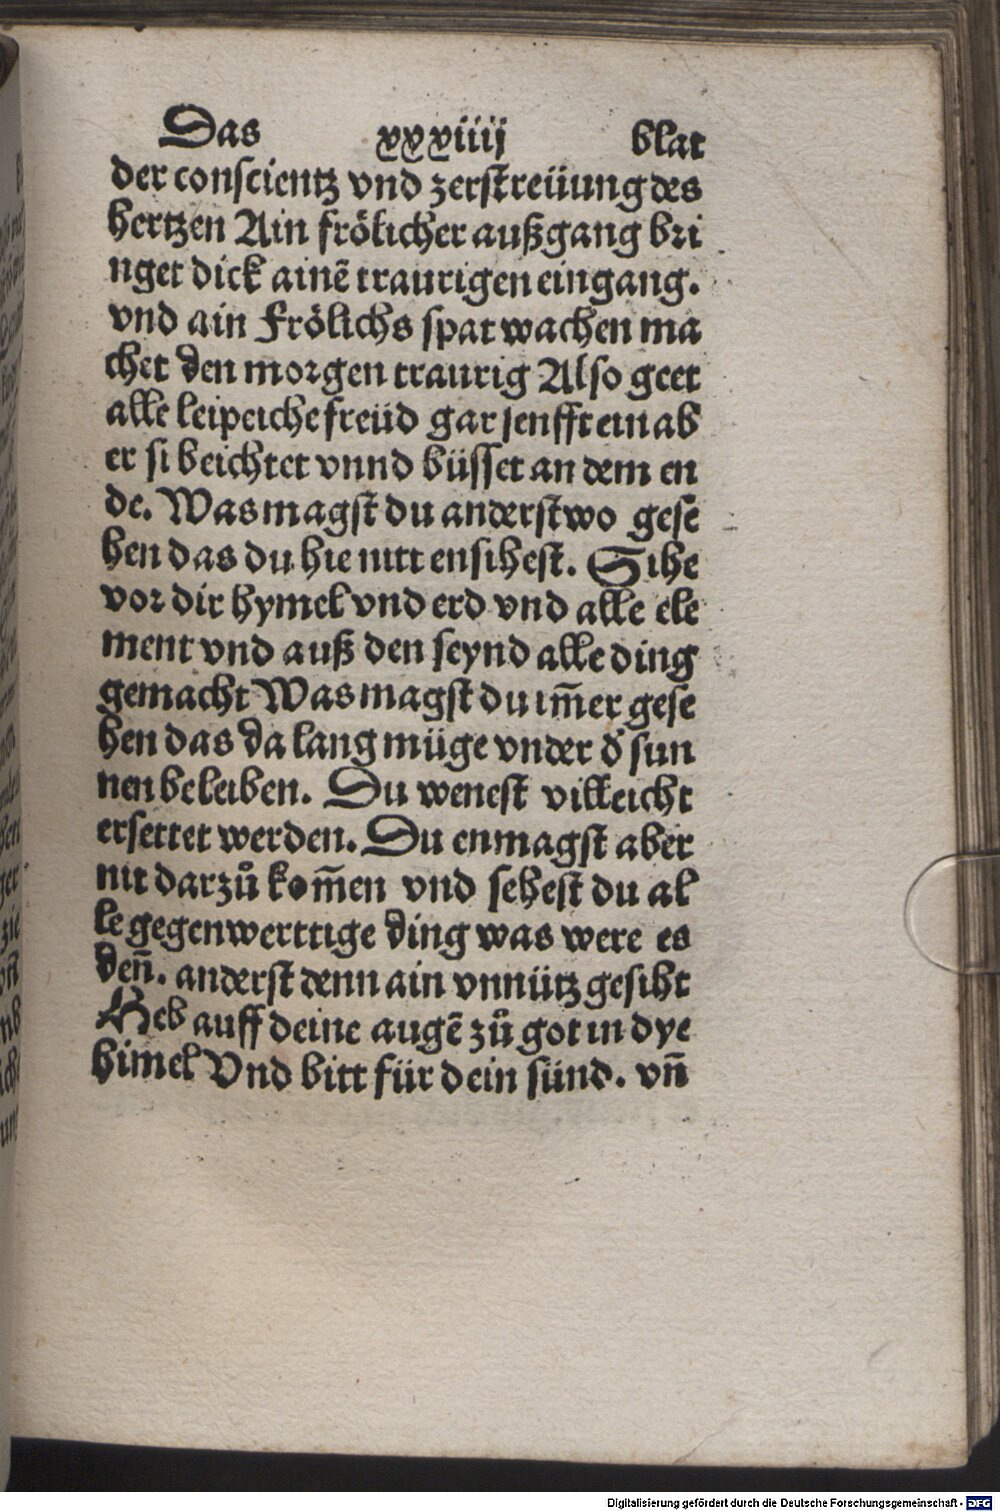 Das xxxiiij blat
der conscientz vnd zerstreüung des
hertzen Ain frölicher außgang bri
nget dick ainē traurigen eingang.
vnd ain Frölichs spat wachen ma
chet den morgen traurig Also geet
alle leipeiche freüd gar senfft ein ab
er si beichtet vnnd büsset an dem en
de. Was magst du anderst wo gese
hen das du hie nitt ensihest. Sihe
vor dir hymel vnd erd vnd alle ele
ment vnd auß den seynd alle ding
gemacht Was magst du im̄er gese
hen das da lang müge vnder d' sun
nen beleiben. Du wenest villeicht
ersettet werden. Du enmagst aber
nit darzů kom̄en vnd sehest du al
le gegenwerttige ding was were es
den̄. anderst denn ain vnnütz gesiht
Heb auff deine augē zů got in dye
himel Vnd bitt für dein sünd. vn̄
Digitalisierung gefördert durch die Deutsche Forschungsgemeinschaft - DFG